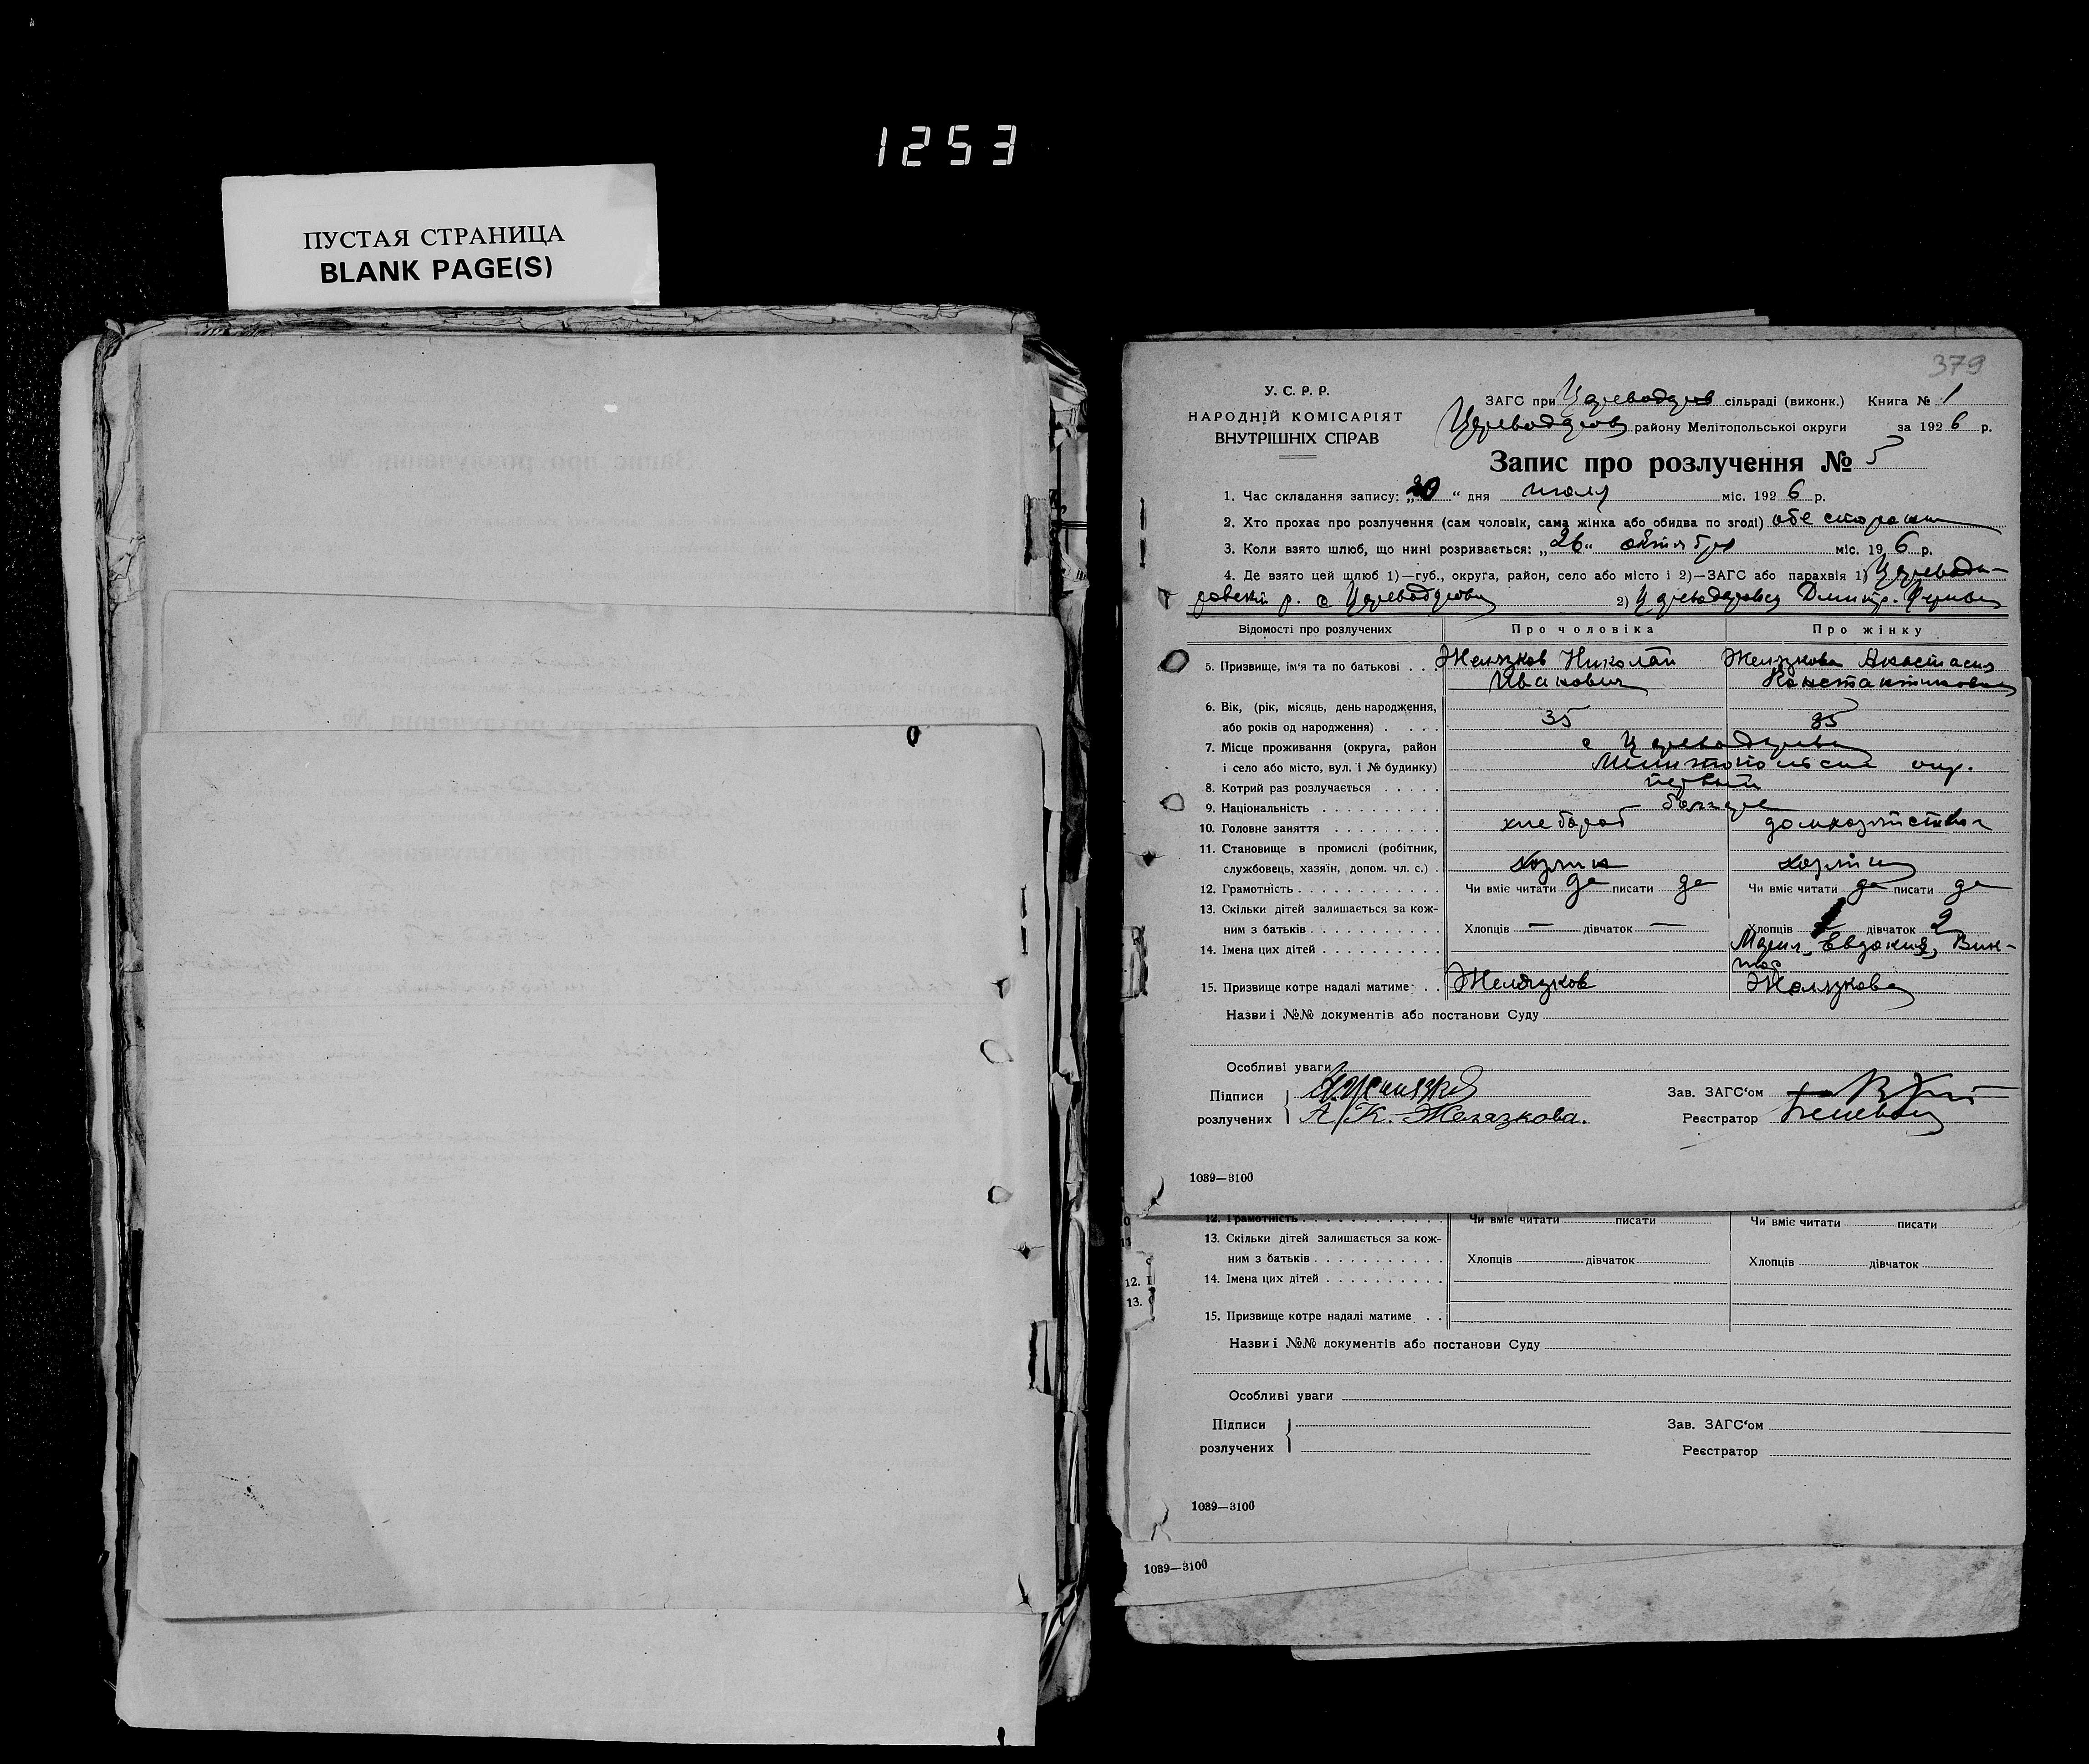 1253
ПУСТАЯ СТРАНИЦА
BLANK PAGE(S)
379
У. С. Р. Р.
НАРОДНІЙ КОМІСАРІЯТ
ВНУТРІШНІХ СПРАВ
ЗАГС при Цареводаров сільраді (виконк.) Книга № 1
Цареводаров району Мелітопольської округи за 1926 р.
Запис про розлучення № 5
1. Час складання запису: „20“ дня июля міс. 1926 р.
2. Хто прохає про розлучення (сам чоловік, сама жінка або обидва по згоді) обе стороны
3. Коли взято шлюб, що нині розривається: „26“ октября міс. 19 6 р.
4. Де взято цей шлюб 1)—губ., округа, район, село або місто і 2)—ЗАГС або парахвія 1)
р. с 2)
Відомості про розлучених Про чоловіка Про жінку
5. Призвище, ім'я та по батькові . . Желязков Николай Желязкова Анастасия
Иванович Константиновна
6. Вік, (рік, місяць, день народження,
або років од народження) . . . . 35 35
7. Місце проживання (округа, район с
і село або місто, вул. і № будинку) Мелитопольской окр.
8. Котрий раз розлучається . . . . . первый
9. Національність . . . . . . . . . . болгаре
10. Головне заняття . . . . . . . . . хлебороб
11. Становище в промислі (робітник,
службовець, хазяїн, допом. чл. с.) .
12. Грамотність . . . . . . . . . . . Чи вміє читати да писати да Чи вміє читати да писати да
13. Скільки дітей залишається за кож-
ним з батьків . . . . . . . . . . . Хлопців — дівчаток — Хлопців 1 дівчаток 2
14. Імена цих дітей . . . . . . . . . . Мария, Евдокия, Вик-
тор
15. Призвище котре надалі матиме . . Желязков Желязкова
Назви і №№ документів або постанови Суду
Особливі уваги
Підписи Зав. ЗАГС'ом
розлучених А. К. Желазкова. Реєстратор
1089—3100
12. Грамотність . . . . . . . . . . . Чи вміє читати писати Чи вміє читати писати
13. Скільки дітей залишається за кож-
ним з батьків . . . . . . . . . . . Хлопців дівчаток Хлопців дівчаток
14. Імена цих дітей . . . . . . . . . .
12.
13.
15. Призвище котре надалі матиме . .
Назви і №№ документів або постанови Суду
Особливі уваги
Підписи Зав. ЗАГС'ом
розлучених Реєстратор
1089—3100
1089—3100